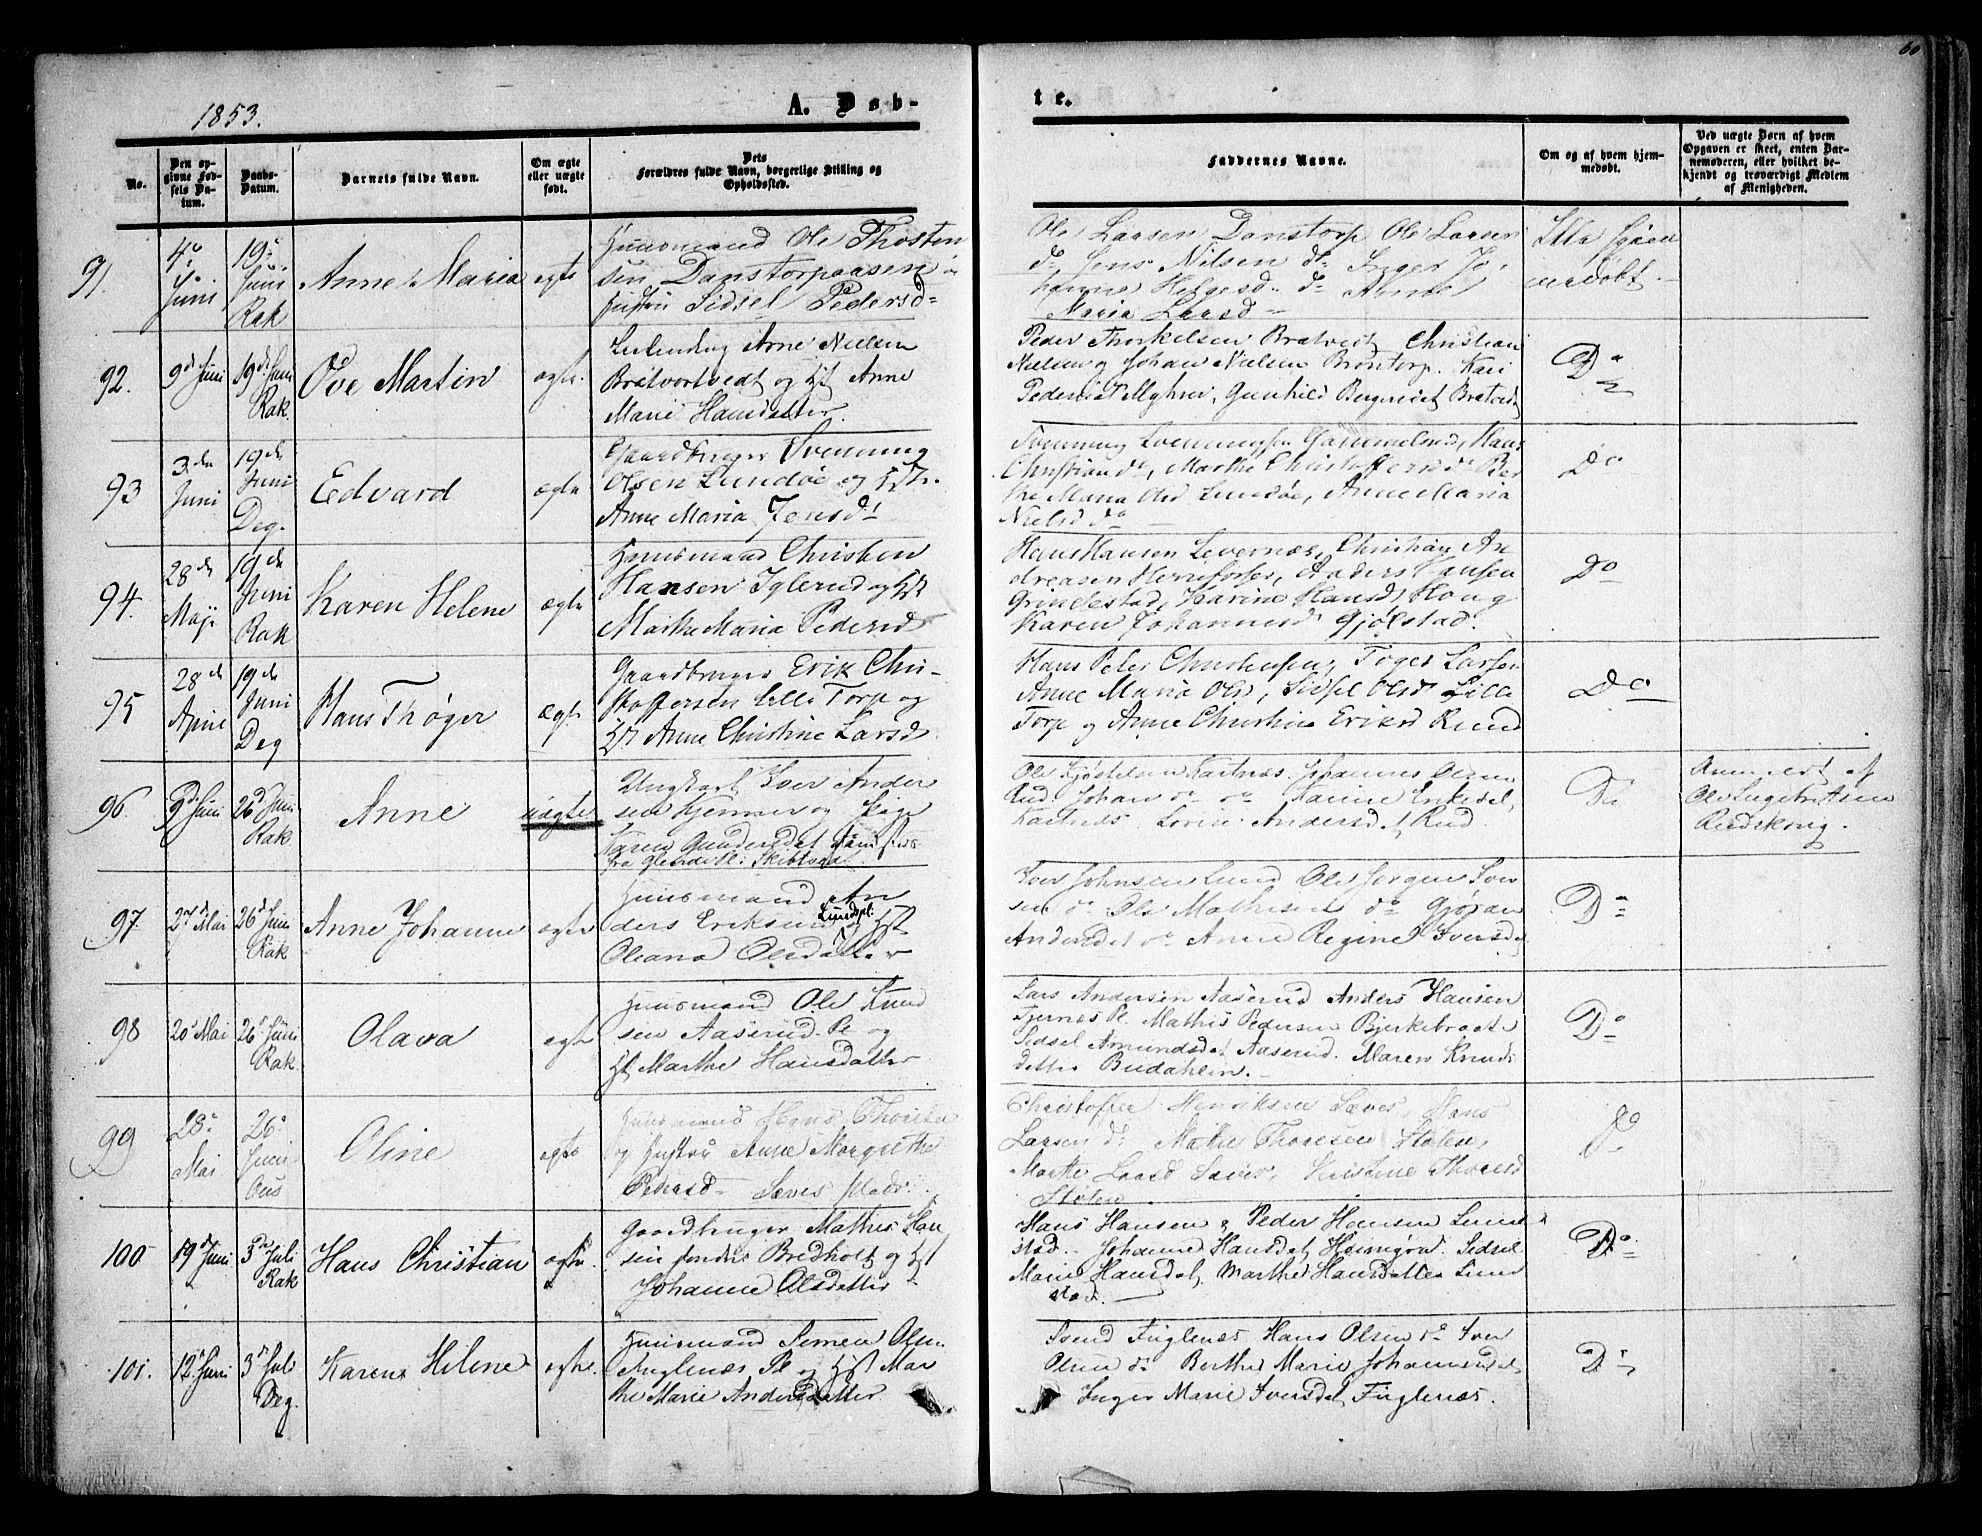 60
1853.
A. Døb-
te.
No.
Den op-
givne Fød-
sels Da-
tum.
Daabs-
Datum.
Barnets fulde Navn.
Om ægte
eller uægte
født.
Dets
Forældres fulde Navn, borgerlige Stilling og
Opholdssted.
Faddernes Navne.
Om og af hvem hjem-
medøbt.
Ved uægte Børn af hvem
Opgaven er skeet, enten Bar-
nemoderen, eller hvilket be-
kjendt og troværdigt Medlem
af Menigheden.
91.
4de
Juni
19de
Juni
Rak
Anne Maria
egte
Huusmand Ole Thosten
sen Danstorpaasen
Hustru Sidsel Pedersd
Ole Larsen Danstorp Ole Larsen
do Jens Nilsen do Inger Jo
hanne Helgesd. do Anne
Maria Larsd
Ikke hjem
medøbt.
92.
9d Juni
19d Juni
Rak.
Ove Martin
egte.
Leilending Arne Nielsen
Bratvortvedt og Hst Anne
Marie Hansdatter.
Peder Thorkelsen Bratvedt Christian
Nielsen og Johan Nielsen Brontorp. Kari
Pedersdt Myhrer, Gunhild Bergersdet Bratvedt
Do
93
3de
Juni
19de
Juni
Deg.
Edvard
ægte
Gaardbruger Svenning
Olsen Lundøe og Hst.
Anne Maria Jensd
Svenning Svenningsen Gammelsrud, Hans
Christian do, Marthe Christoffersd Ber
the Maria Olsd Lundøe, Anne Maria
Nielsd do
Do
94.
28de
Maji
19de
Juni
Rak
Karen Helene
ægte
Huusmand Christen
Hansen Iglerud og Hst
Marthe Maria Pedersd
Hans Hansen Levernæs, Christian An
dreasen Herreforser, Anders Hansen
Grindestad, Karine Hansd, Houg
Karen Johannesd Gjølstad.
Do
95
28de
April
19de
Juni
Deg
Hans Thøger
ægte
Gaardbruger Erik Chri-
stoffersen Lille Torp og
Hst Anne Christine Larsd
Hans Peter Christensen, Tøger Larsen
Anne Maria Olsd, Sidsel Olsd Lille
Torp og Anne Christine Eriksd Ruud
Do
96.
9d Juni
26d Juni
Rak
Anne
uægte
Ungkarl Iver Ander
sen Hjemmer og Pige
Karen Gundersdet
Ole Kjøstelsen
Rud. Johan do do Karine
Lovise Andersdt Rud.
Do
Anmeldt af
Ole
97.
27d Mai
26d Juni
Rak
Anne Johanne
egte
Huusmand An
ders Eriksen Lundspl. og Hst
Oleana Olsdatter
Iver Johnsen Lund Ole Jørgen Iver
sen do Ole Mathisen do Gjøran
Andersdet do Anne Regine Iversdt
Do
98
20d Mai
26d Juni
Rak.
Olava
egte
Huusmand Ole Knud
sen Aaserud Pl og
Hst Marthe Hansdatter
Lars Andersen Aaserud Anders Hansen
Tjernæs Pl. Mathis Pedersen Bjerkebraate
Sidsel Amundsdet Aaserud. Maren Knuds
datter Budahlen.
Do
99
28de
Mai
26de
Juni
Ous
Oline
egte
Huusmand Hans Thoresen
og Hustru Anne Margrethe
Pedersd Sæves plads.
Christoffer Henriksen Sæves, Hans
Larsen do Mathe Thoresen Stolen,
Marthe Larsd Sæves, Kirstine Thoresd
Stolen
Do
100
19d Juni
3de Juli
Rak
Hans Christian
egte.
Gaardbruger Mathis Han
sen søndre Bredholt og Hst
Johanne Olsdatter
Hans Hansen & Peder Hansen Lund
stad. Johanne Hansdet, Sidsel
Marie Hansdet, Marthe Hansdatter Lund
stad.
Do
101.
12d Juni
3d Juli
Deg.
Karen Helene
egte.
Huusmand Simen Olsen
Fuglenæs Pl og Hst Mar
the Marie Andersdatter.
Svend Fuglenæs, Hans Olsen do Iver
Olsen do Berthe Marie Johannesdet
Inger Marie Iversdet Fuglenæs.
Do